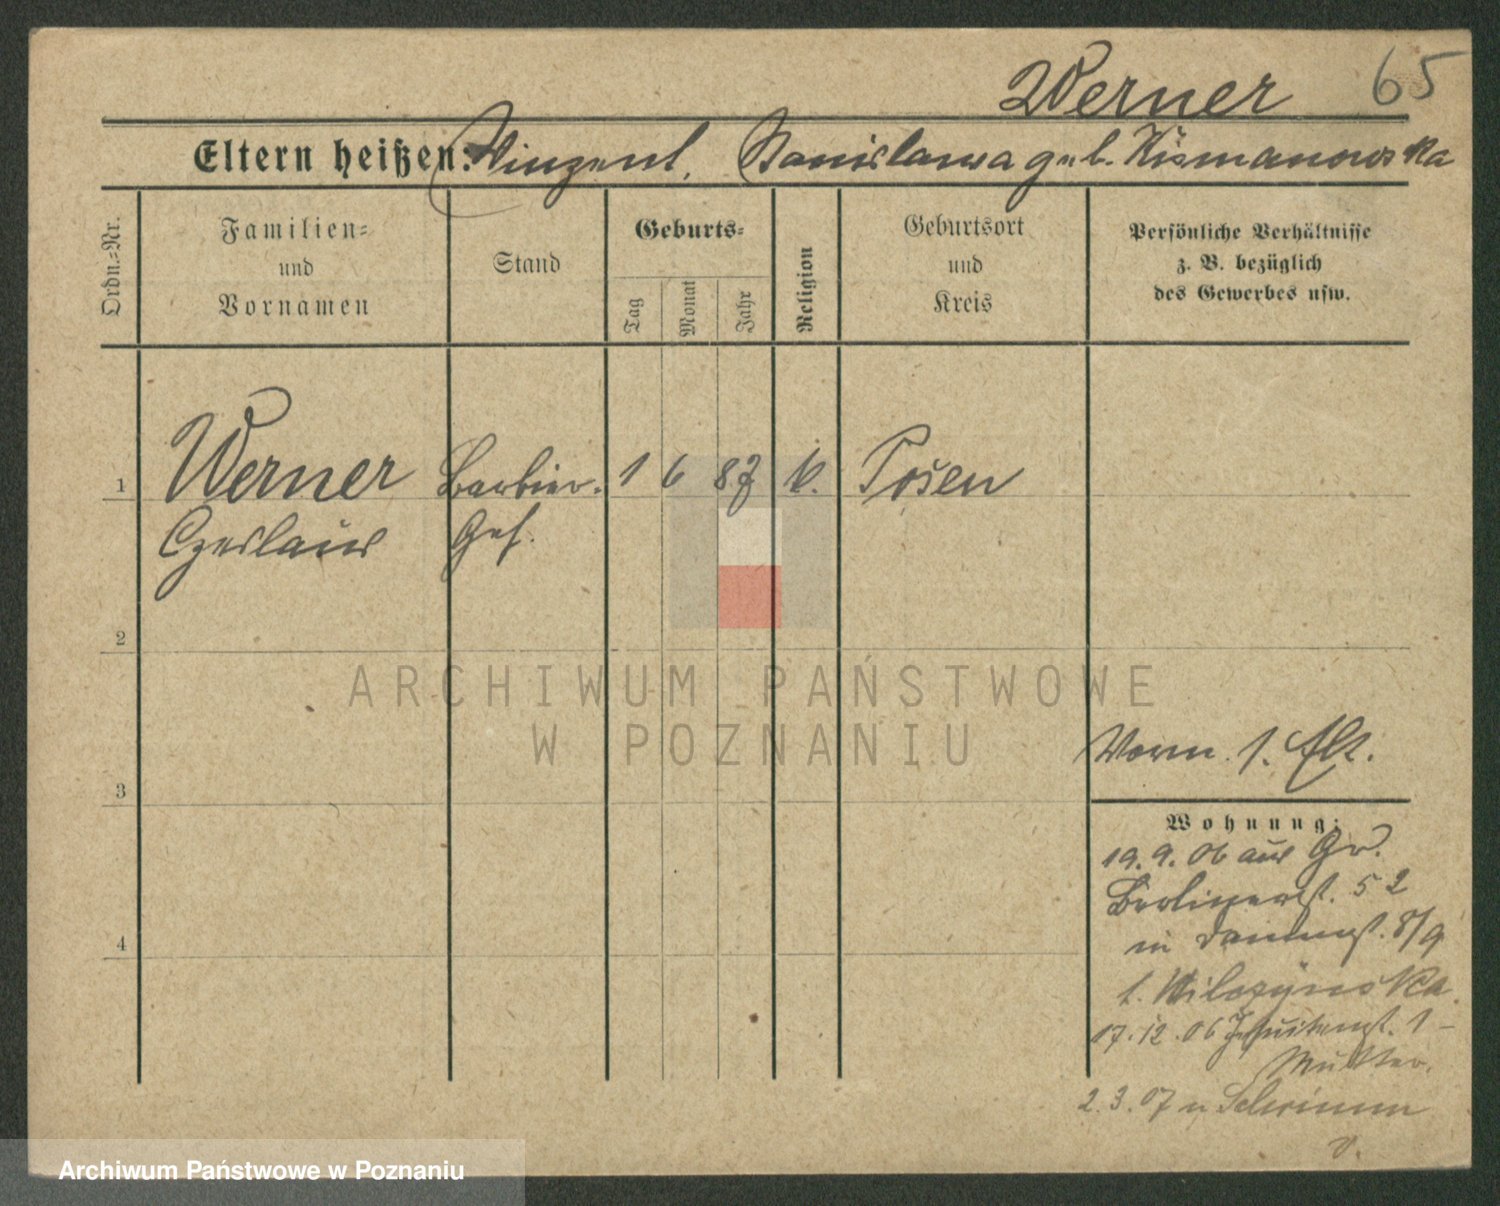 Werner 65
Eltern heißen: Vinzent, Stanislawa geb. Kismanowska
Ordn.-Nr.
Familien-
und
Vornamen
Stand
Geburts-
Tag
Monat
Jahr
Religion
Geburtsort
und
Kreis
Persönliche Verhältnisse
z. B. bezüglich
des Gewerbes usw.
1 Werner Barbier- 1 6 87 k. Posen
Czeslaus Geh.
2
ARCHIWUM PAŃSTWOWE
W POZNANIU
Vorm. s.
3
Wohnung:
19.9.06 aus Gr.
Berlinerst. 52
in Dammst. 8/9
17.12.06 Jesuitenst. 1 -
Mutter.
4
2.3.07 n Schrimm
v.
Archiwum Państwowe w Poznaniu